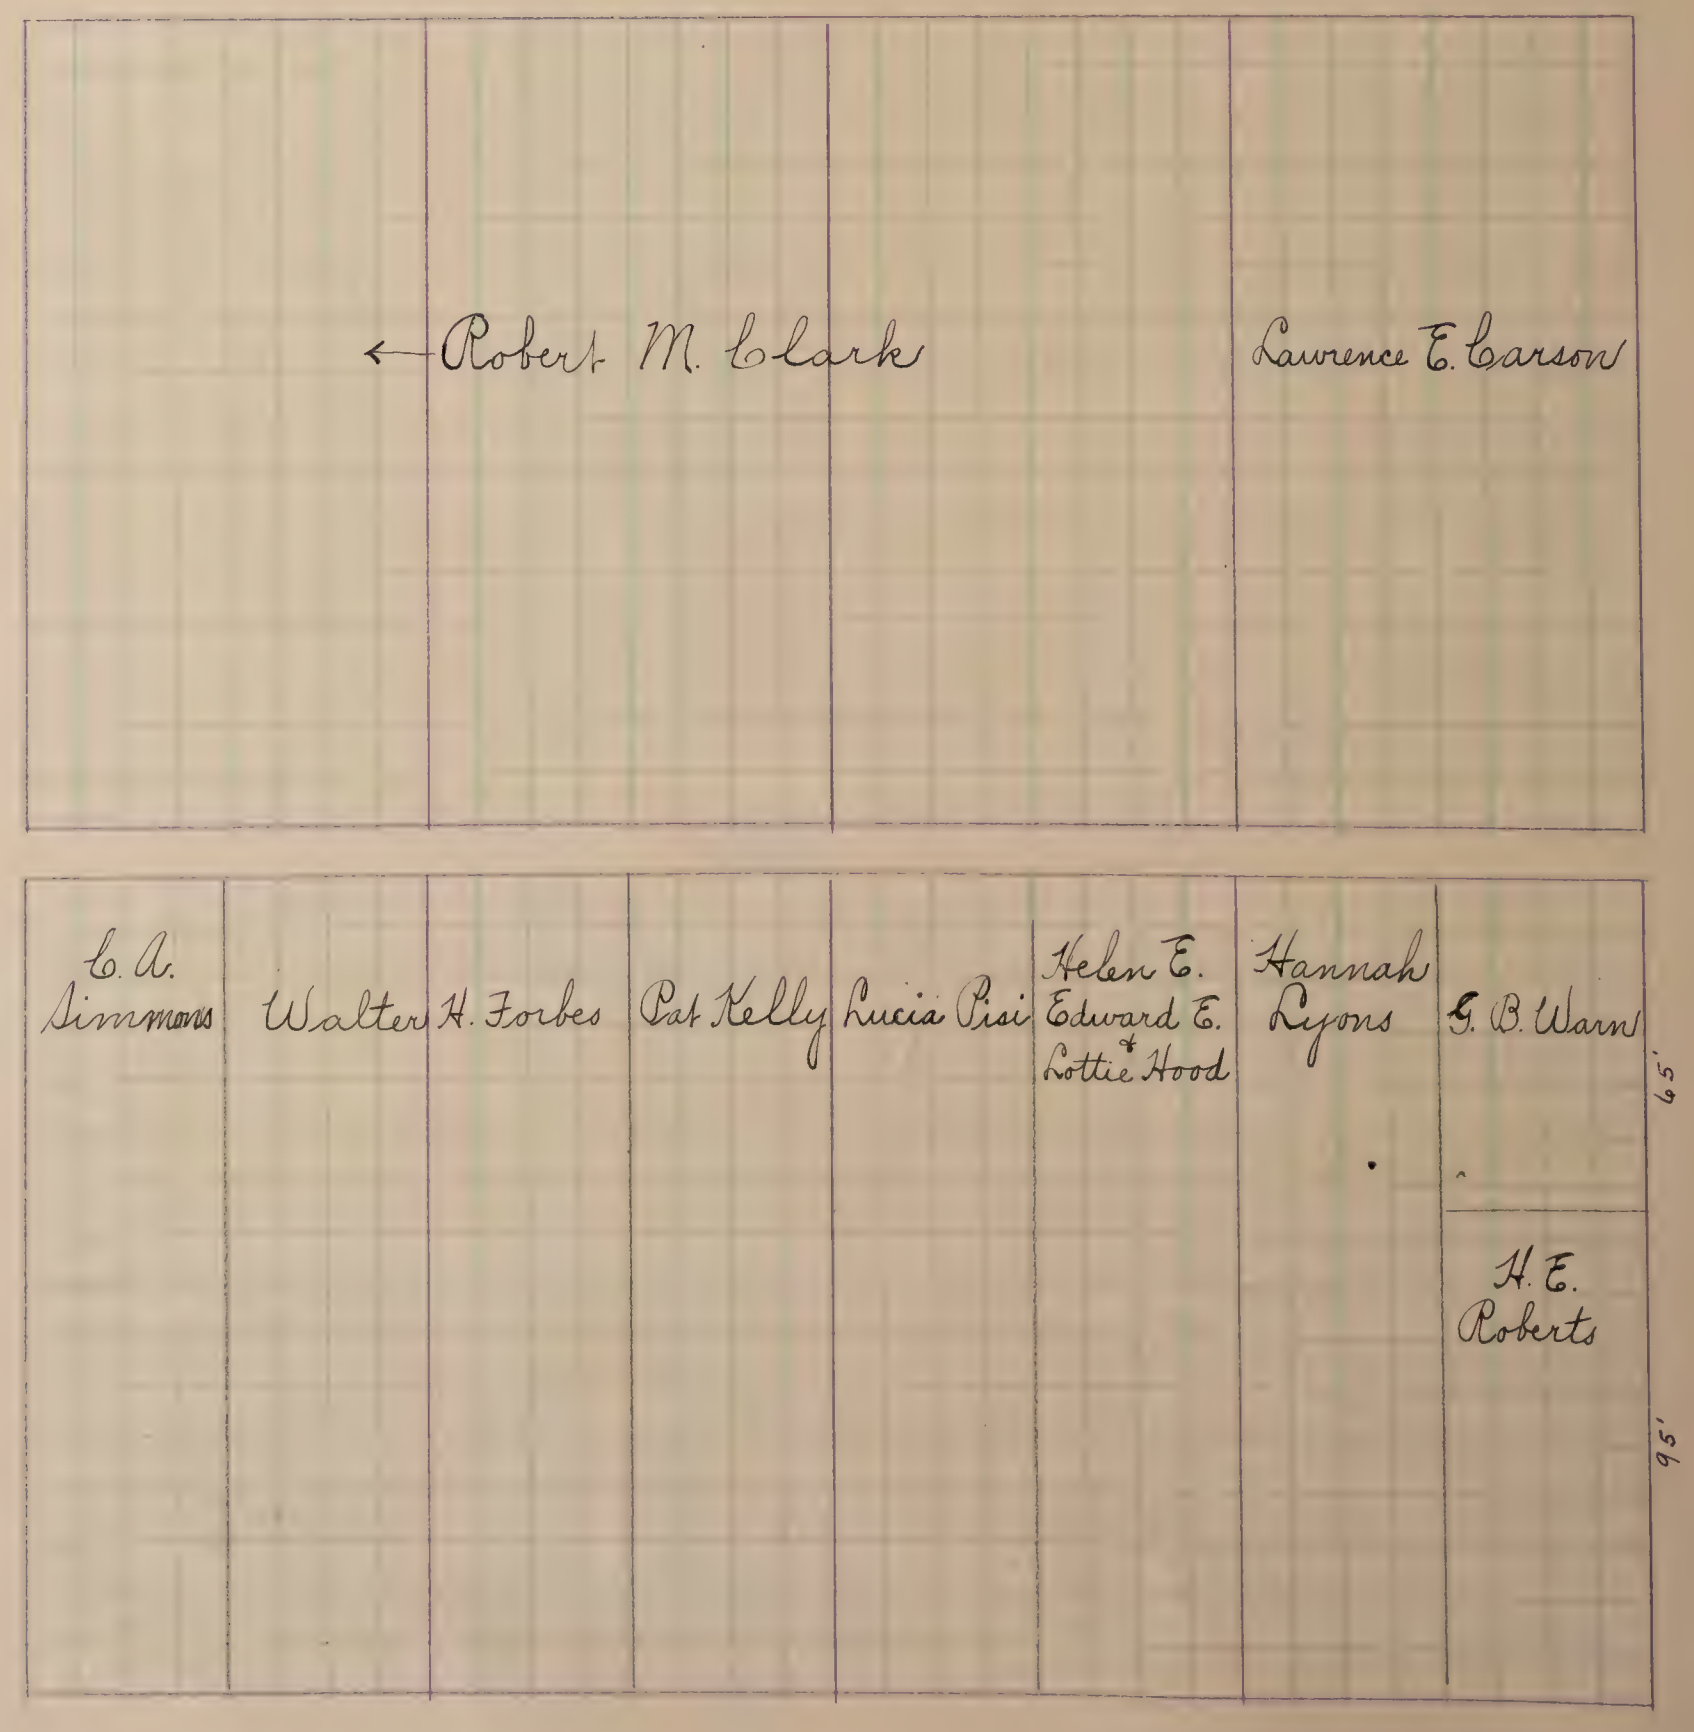 ← Robert M. Clark
Lawrence E. Carson
C. A.
Simmons
Walter H. Forbes
Pat Kelly
Lucia Pisi
Helen E.
Edward E.
&
Lottie Hood
Hannah
Lyons
G. B. Warn
65'
H. E.
Roberts
95'